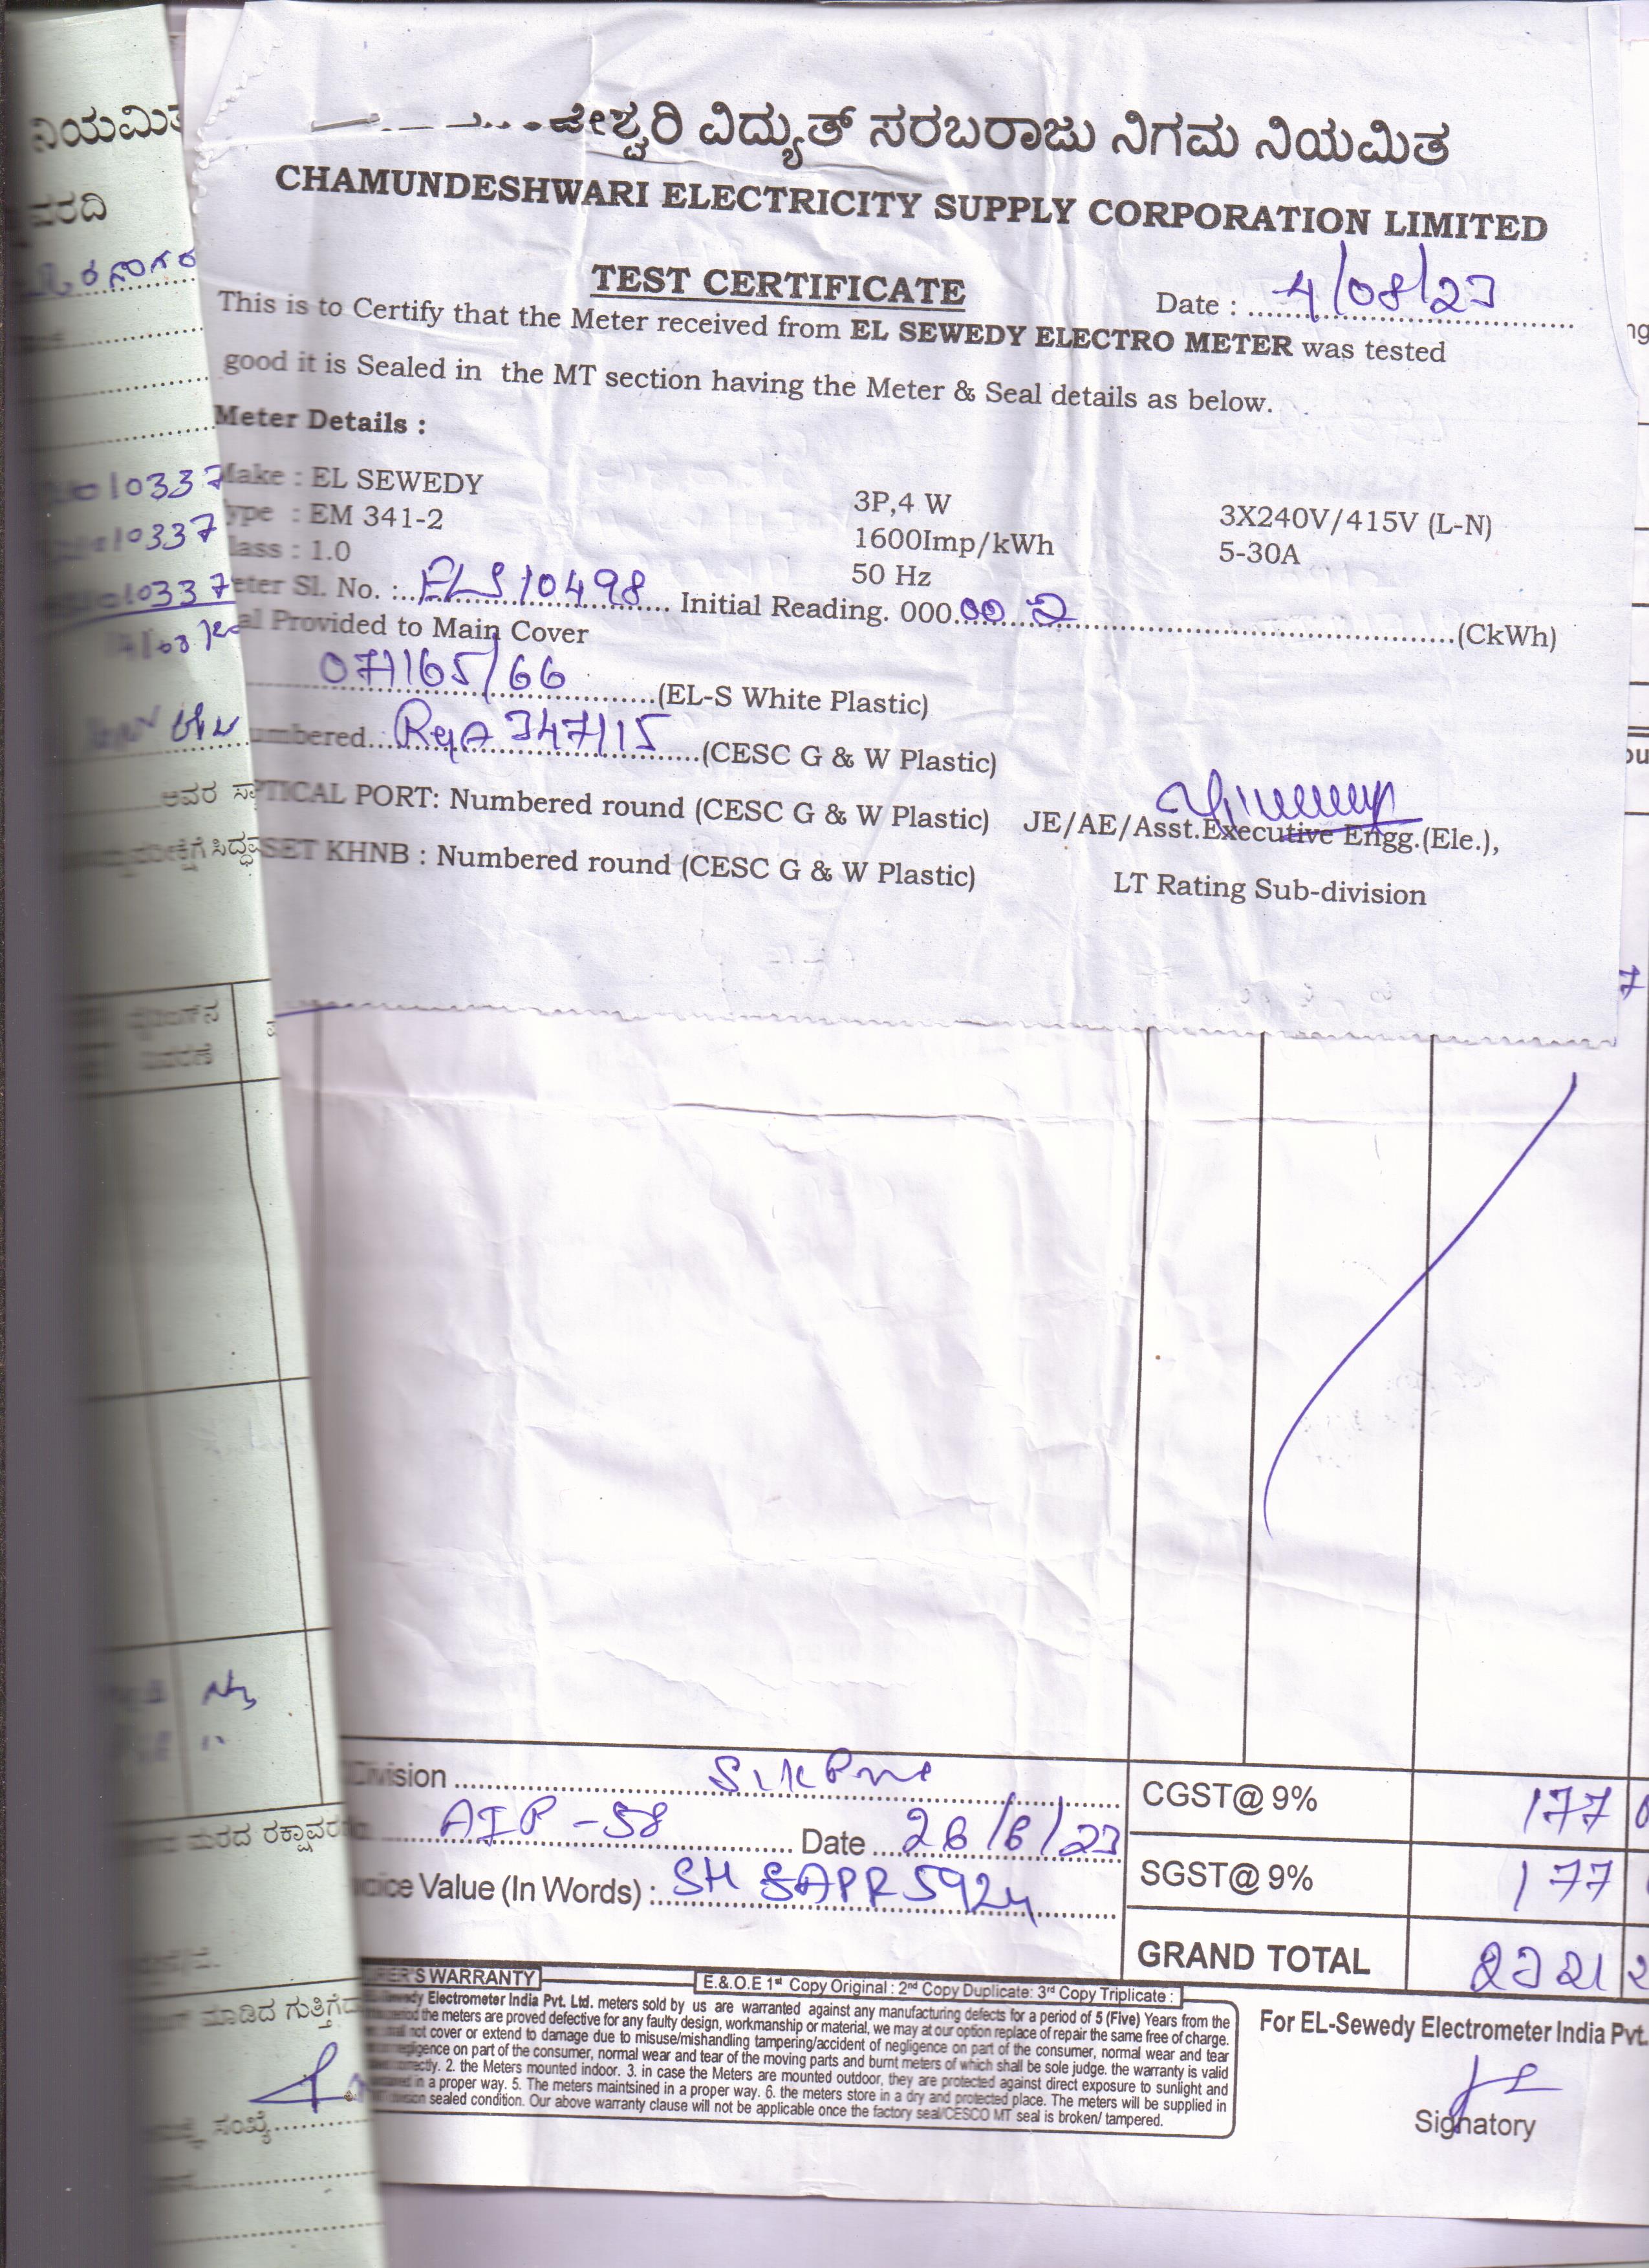 ನಿಯಮಿತ
ವರದಿ
10337
10337
10337
ಅವರ
ವಿವರಣೆ
ಮರದ
ಮಾಡಿದ
ಸಂಖ್ಯೆ
ಡೇಶ್ವರಿ ವಿದ್ಯುತ್ ಸರಬರಾಜು ನಿಗಮ ನಿಯಮಿತ
CHAMUNDESHWARI ELECTRICITY SUPPLY CORPORATION LIMITED
TEST CERTIFICATE
Date : 4/08/23
This is to Certify that the Meter received from EL SEWEDY ELECTRO METER was tested
good it is Sealed in the MT section having the Meter & Seal details as below.
Meter Details :
Make : EL SEWEDY 3P,4 W 3X240V/415V (L-N)
ype : EM 341-2 1600Imp/kWh 5-30A
lass : 1.0 50 Hz
eter Sl. No. : ELS 10498 Initial Reading. 000.00 2 (CkWh)
al Provided to Main Cover
071165/66 (EL-S White Plastic)
umbered 347115 (CESC G & W Plastic)
TICAL PORT: Numbered round (CESC G & W Plastic) JE/AE/Asst.Executive Engg.(Ele.),
SET KHNB : Numbered round (CESC G & W Plastic) LT Rating Sub-division
Division
CGST@ 9% 177
AIP -58 Date 26/6/23
SGST@ 9% 177
oice Value (In Words) :
GRAND TOTAL 2321
RER'S WARRANTY
E.&.O.E 1st Copy Original : 2nd Copy Duplicate: 3rd Copy Triplicate :
Electrometer India Pvt. Ltd. meters sold by us are warranted against any manufacturing defects for a period of 5 (Five) Years from the
the meters are proved defective for any faulty design, workmanship or material, we may at our option replace of repair the same free of charge.
not cover or extend to damage due to misuse/mishandling tampering/accident of negligence on part of the consumer, normal wear and tear
on part of the consumer, normal wear and tear of the moving parts and burnt meters of which shall be sole judge. the warranty is valid
2. the Meters mounted indoor. 3. in case the Meters are mounted outdoor, they are protected against direct exposure to sunlight and
in a proper way. 5. The meters maintsined in a proper way. 6. the meters store in a dry and protected place. The meters will be supplied in
sealed condition. Our above warranty clause will not be applicable once the factory seal/CESCO MT seal is broken/ tampered.
For EL-Sewedy Electrometer India Pvt.
Signatory